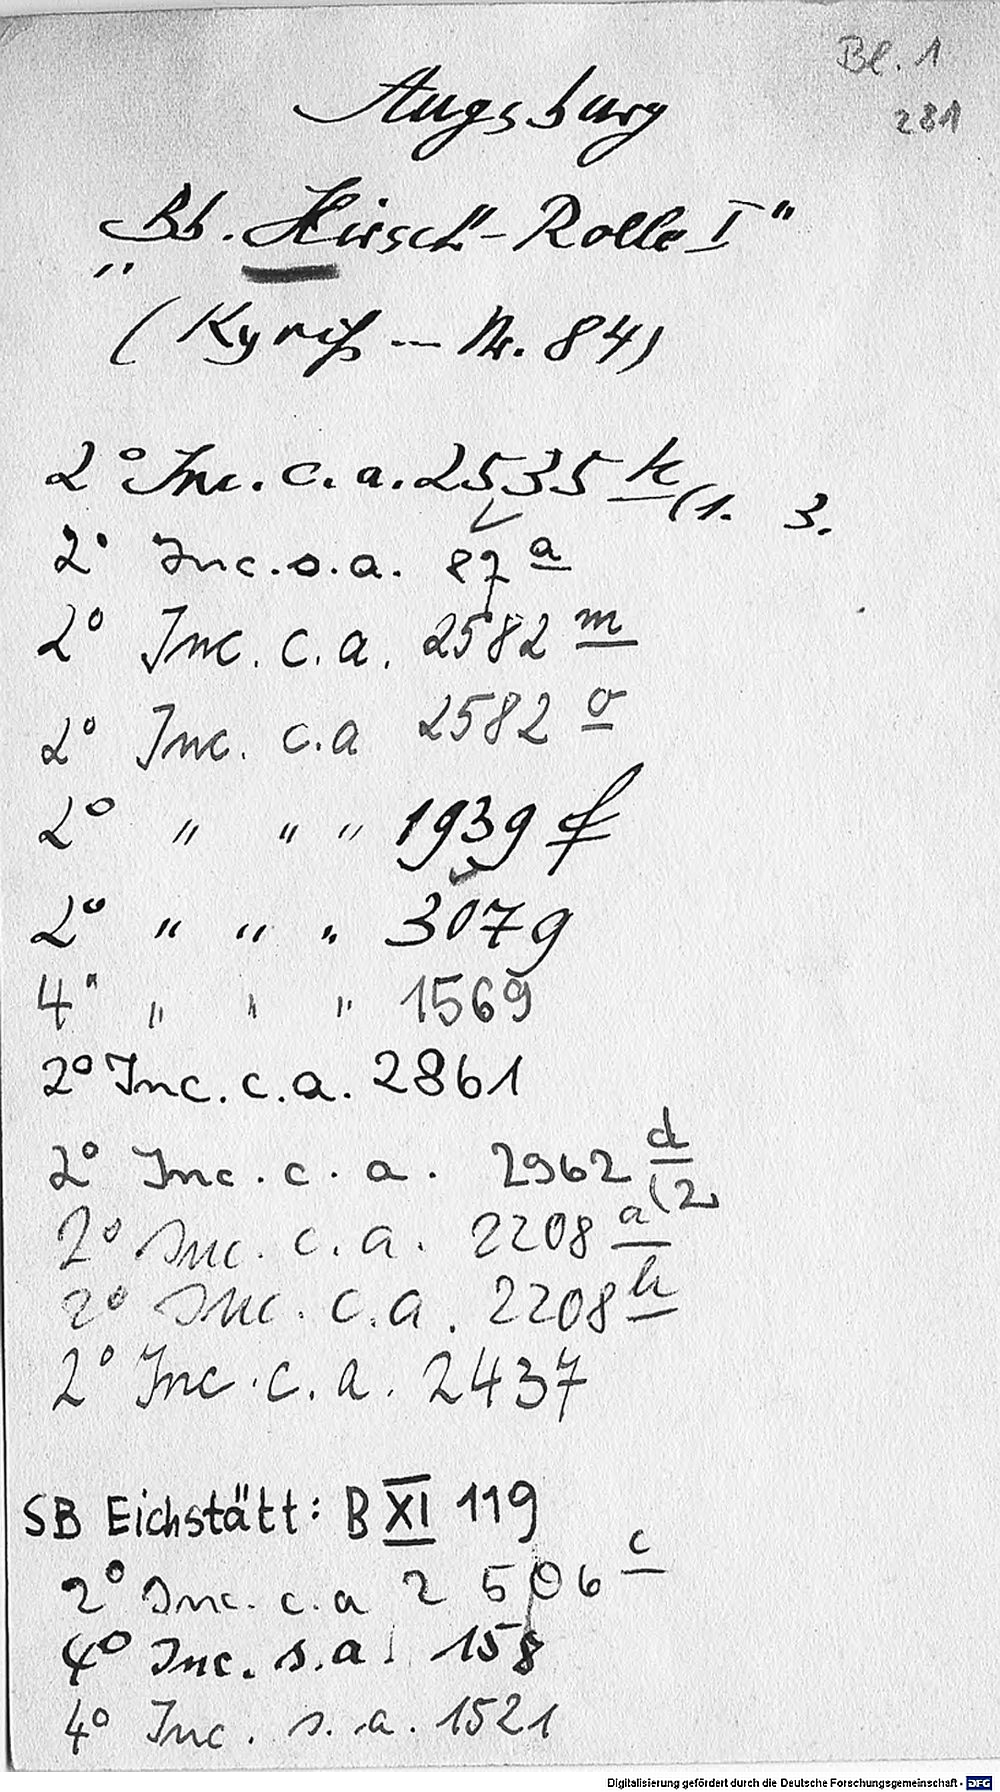 Bl. 1
281
Augsburg
„Bb. Hirsch"-Rolle I"
(Kyriß - Nr. 84)
2° Inc. c. a. 2535 k (1. 3.
2° Inc. s. a. 87 a
2° Inc. c. a. 2582 m
2° Inc. c. a 2582 o
2° " " " 1939 f
2° " " " 3079
4° " " " 1569
2° Inc. c. a. 2861
2° Inc. c. a. 2962 d (2
2° Inc. c. a. 2208 a
2° Inc. c. a. 2208 h
2° Inc. c. a. 2437
SB Eichstätt: B XI 119
2° Inc. c. a 2506 c
4° Inc. s. a. 158
4° Inc. s. a. 1521
Digitalisierung gefördert durch die Deutsche Forschungsgemeinschaft - DFG